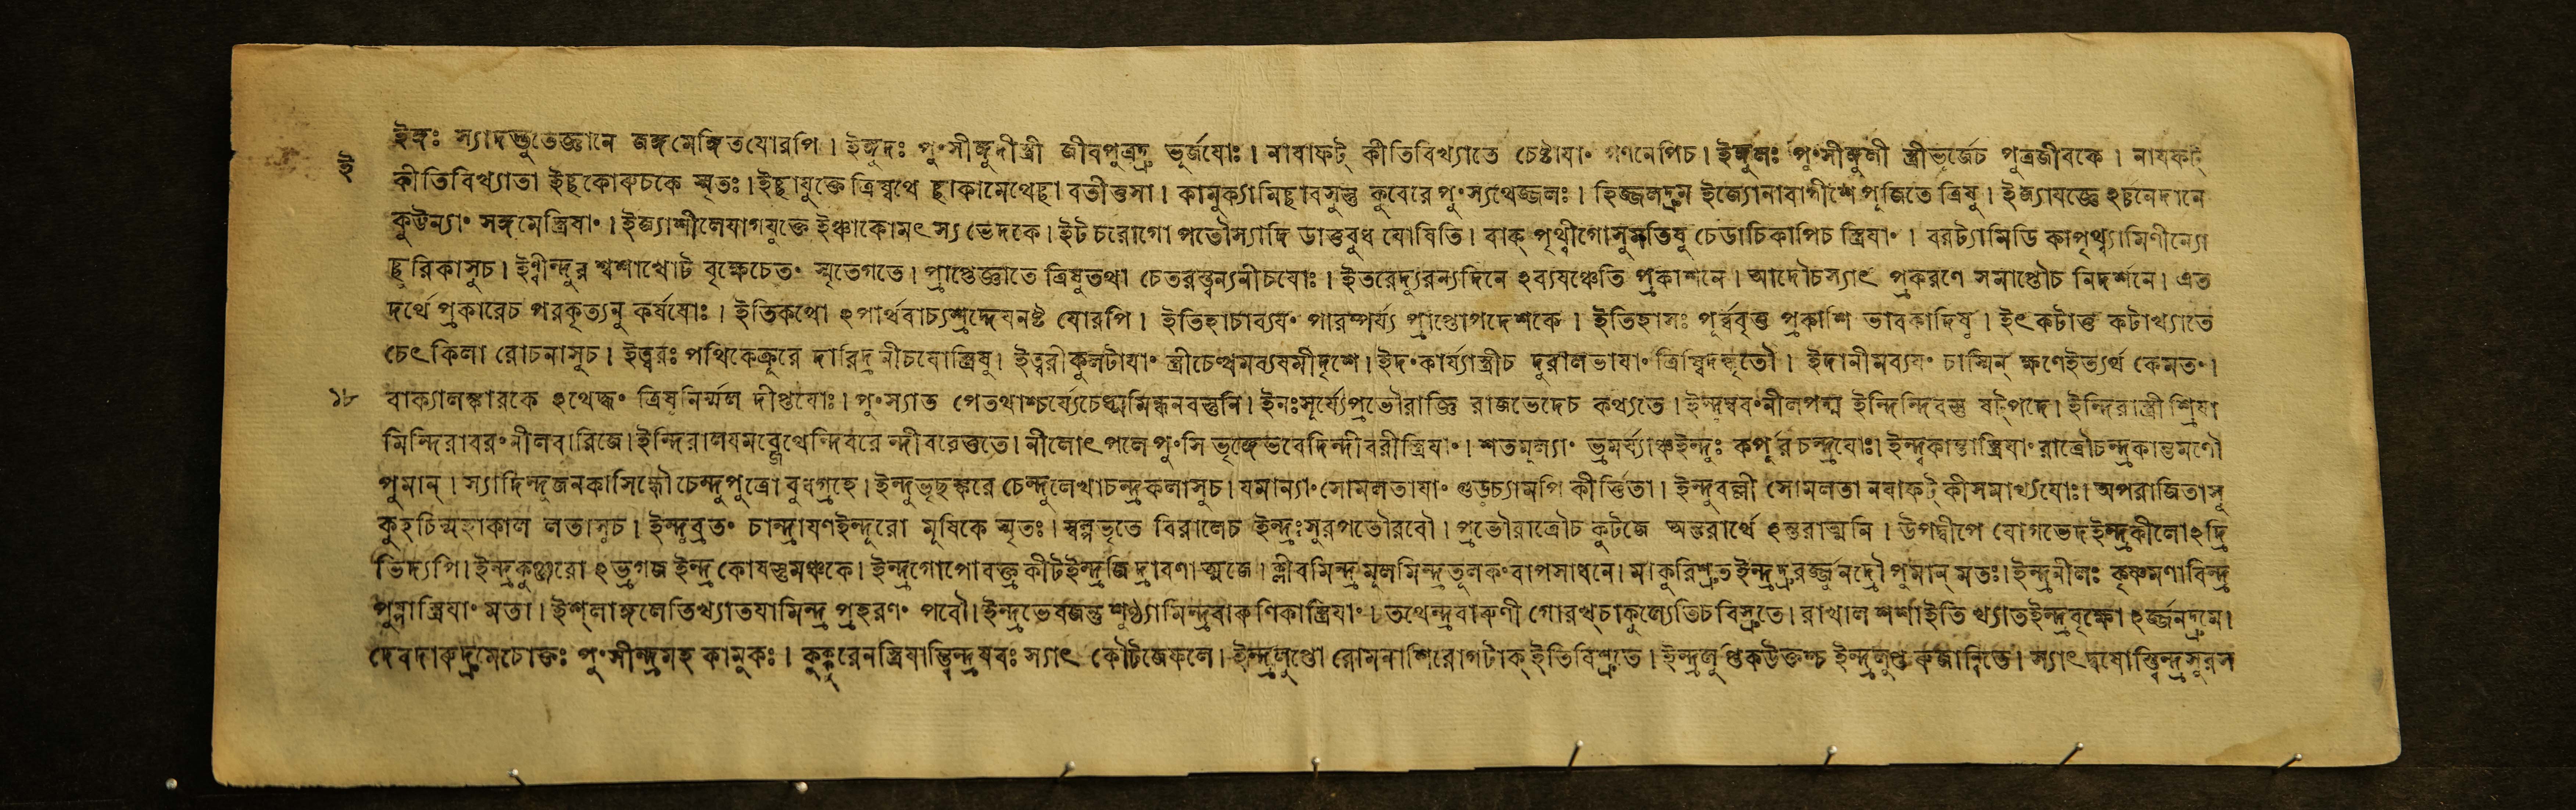 ই
ইঙ্গঃ স্যাদদ্ভুতেজ্ঞানে জঙ্গমেঙ্গিতযোরপি । ইঙ্গুদঃ পুংসীঙ্গুদীস্ত্রী জীবপুত্রদ্রু ভূর্জযোঃ । নাবাফট্ কীতিবিখ্যাতে চেষ্টাযাং গণনেপিচ । ইঙ্গুলঃ পুংসীঙ্গুলী স্ত্রীভূর্জেচ পুত্রজীবকে । নাযফট্
কীতিবিখ্যাতা ইছ্ছকোৰুচকে স্মৃতঃ । ইছ্ছাযুক্তে ত্রিষ্বথে ছ্ছাকামেথেছ্ছা বতীত্তুসা । কামুক্যামিছ্ছাবসুস্তু কুবেরে পুংস্যথেজ্জলঃ । হিজ্জলদ্রুম ইজ্যোনাবাগীশে পূজিতে ত্রিষু । ইজ্যাযজ্ঞে ঽর্চনেদানে
কুট্টন্যাং সঙ্গমেস্ত্রিযাং । ইজ্যাশীলেযাগযুক্তে ইঞ্চাকোমৎস্য ভেদকে । ইট চরোগো পতৌস্যাদি ডাত্তুবুধ যোষিতি । বাক্ পৃথ্বীগোসুমতিষু চেডাচিকাপিচ স্ত্রিযাং । বরট্যামিডি কাপৃথ্ব্যামিণীন্যো
ছুরিকাসুচ । ইণ্বীন্দুর শ্বশাখোট বৃক্ষেচেতং স্মৃতেগতে । প্রাপ্তেজ্ঞাতে ত্রিষুতথা চেতরস্ত্বন্যনীচযোঃ । ইতরেদ্যুরন্যদিনে ঽব্যযঞ্চেতি প্রকাশনে । আদৌচস্যাৎ প্রকরণে সমাপ্তৌচ নিদর্শনে । এত
দর্থে প্রকারেচ পরকৃত্যনু কর্ষযোঃ । ইতিকথো ঽপার্থবাচ্যশ্রদ্দেযনষ্ট যোরপি । ইতিহাচাব্যযং পারম্পর্য্য প্রাপ্তোপদেশকে । ইতিহাসঃ পূর্ব্ববৃত্ত প্রকাশি ভাবকাদিষু । ইৎকটাত্তু কটাখ্যাতে
চেৎকিলা রোচনাসুচ । ইত্বরঃ পথিকেক্রূরে দারিদ্রনীচযোস্ত্রিষু । ইত্বরীকুলটাযাং স্ত্রীচেত্থমব্যযমীদৃশে । ইদংকার্য্যাস্ত্রীচ দুরালভাযাং ত্রিষ্বিদঙ্কৃতৌ । ইদানীমব্যযং চাস্মিন্ ক্ষণেইত্যর্থ কেমতং ।
১৮ বাক্যালঙ্কারকে ঽথেদ্ধং ত্রিষুনির্ম্মল দীপ্তযোঃ । পুংস্যাত পেতথাশ্চর্য্যেচেধ্মমিন্ধনবস্তুনি । ইনঃসূর্য্যেপ্রভৌরাজ্ঞি রাজভেদেচ কথ্যতে । ইন্দম্বরংনীলপদ্ম ইন্দিন্দিবস্তু ষট্পদে । ইন্দিরাস্ত্রী শ্রিযা
মিন্দিরাবরংনীলবারিজে । ইন্দিরালযমব্জেথেন্দিবরে ন্দীবরেত্ততে । নীলোৎপলে পুংসি ভৃঙ্গেভবেদিন্দীবরীস্ত্রিযাং । শতমূল্যাং ভ্রমর্য্যাঞ্চইন্দুঃ কর্পূরচন্দ্রযোঃ । ইন্দুকান্তাস্ত্রিযাং রাত্রৌচন্দ্রকান্তমণৌ
পুমান্ । স্যাদিন্দুজনকাসিন্ধৌ চেন্দুপুত্রো বুধগ্রহে । ইন্দুভৃছঙ্করে চেন্দুলেখাচন্দ্রকলাসুচ । যমান্যাং সোমলতাযাং গুড়চ্যামপি কীর্ত্তিতা । ইন্দুবল্লী সোমলতা নবাফট্ কীসমাখ্যযোঃ । অপরাজিতাসূ
কুহচিন্মহাকাল লতাসুচ । ইন্দুব্রতং চান্দ্রাযণইন্দূরো মূষিকে স্মৃতঃ । স্বল্পভৃতে বিরালেচ ইন্দ্রঃসুরপতৌরবৌ । প্রভৌরাত্রৌচ কুটজে অন্তরার্থে ঽন্তরাত্মনি । উপদ্বীপে যোগভেদইন্দ্রকীলোঽদ্রি
ভিদ্যপি । ইন্দ্রকুঞ্জরো ঽভ্রগজ ইন্দ্র কোষস্তুমঞ্চকে । ইন্দ্রগোপোরক্ত কীটইন্দ্রজি দ্রাবণা ত্মজে । ক্লীবমিন্দ্র মূলমিন্দ্রতূলকংবাপসাধনে । মাকুরিশ্রুতইন্দ্রদ্রুরর্জ্জুনদ্রৌ পুমান্ মতঃ । ইন্দ্রনীলঃ কৃষ্ণমণাবিন্দ্র
পুষ্পাস্ত্রিযাং মতা । ইশ্লাঙ্গলেতিখ্যাতযামিন্দ্র প্রহরণং পবৌ । ইন্দ্রভেষজন্তু শুণ্ঠ্যামিন্দ্রবাৰুণিকাস্ত্রিযাং । তথেন্দ্রবাৰুণী গোরখ্চাকুল্যেতিচবিস্রুতে । রাখাল শশাইতি খ্যাতইন্দ্রবৃক্ষো ঽর্জ্জুনদ্রুমে ।
দেবদাৰুদ্রুমেচোক্তঃ পুংসীন্দ্রমহ কামুকঃ । কুক্কুরেনস্ত্রিযান্ত্বিন্দ্রযবঃ স্যাৎ কৌটজেফলে । ইন্দ্রলুপ্তো রোমনাশিরোগটাক্ ইতিবিশ্রুতে । ইন্দ্রলুপ্তকউক্তশ্চ ইন্দ্রলুপ্ত ৰুজান্বিতে । স্যাৎদ্বযোস্ত্বিন্দ্রসুরস